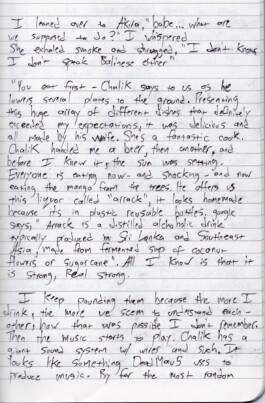 I leaned over to Akira, "babe... what are
we supposed to do?" I whispered
She exhaled smoke and shrugged, "I don't know,
I don't speak Balinese either"
"You eat first - Chalik says to us as he
lowers several plates to the ground. Presenting
this huge array of different dishes that definitely
exceeded my expectations, it was delicious and
all made by his wife. She's a fantastic cook.
Chalik handed me a beer, then another, and
before I knew it, the sun was setting.
Everyone is eating now - and smoking - and now
eating the mango from the trees. He offers us
this liquor called "arrack", it looks homemade
because its in plastic reusable bottles. google
says, Arrack is a distilled alcoholic drink
typically produced in Sri Lanka and Southeast
Asia, made from fermented sap of coconut
flowers or sugarcane". All I know is that it
is strong, Real strong.
I keep pounding them because the more I
drink, the more we seem to understand each-
other, how that was possible I don't remember.
Then the music starts to play. Chalik has a
giant sound system w/ wires and such. It
looks like something DeadMau5 uses to
produce music. By far the most random